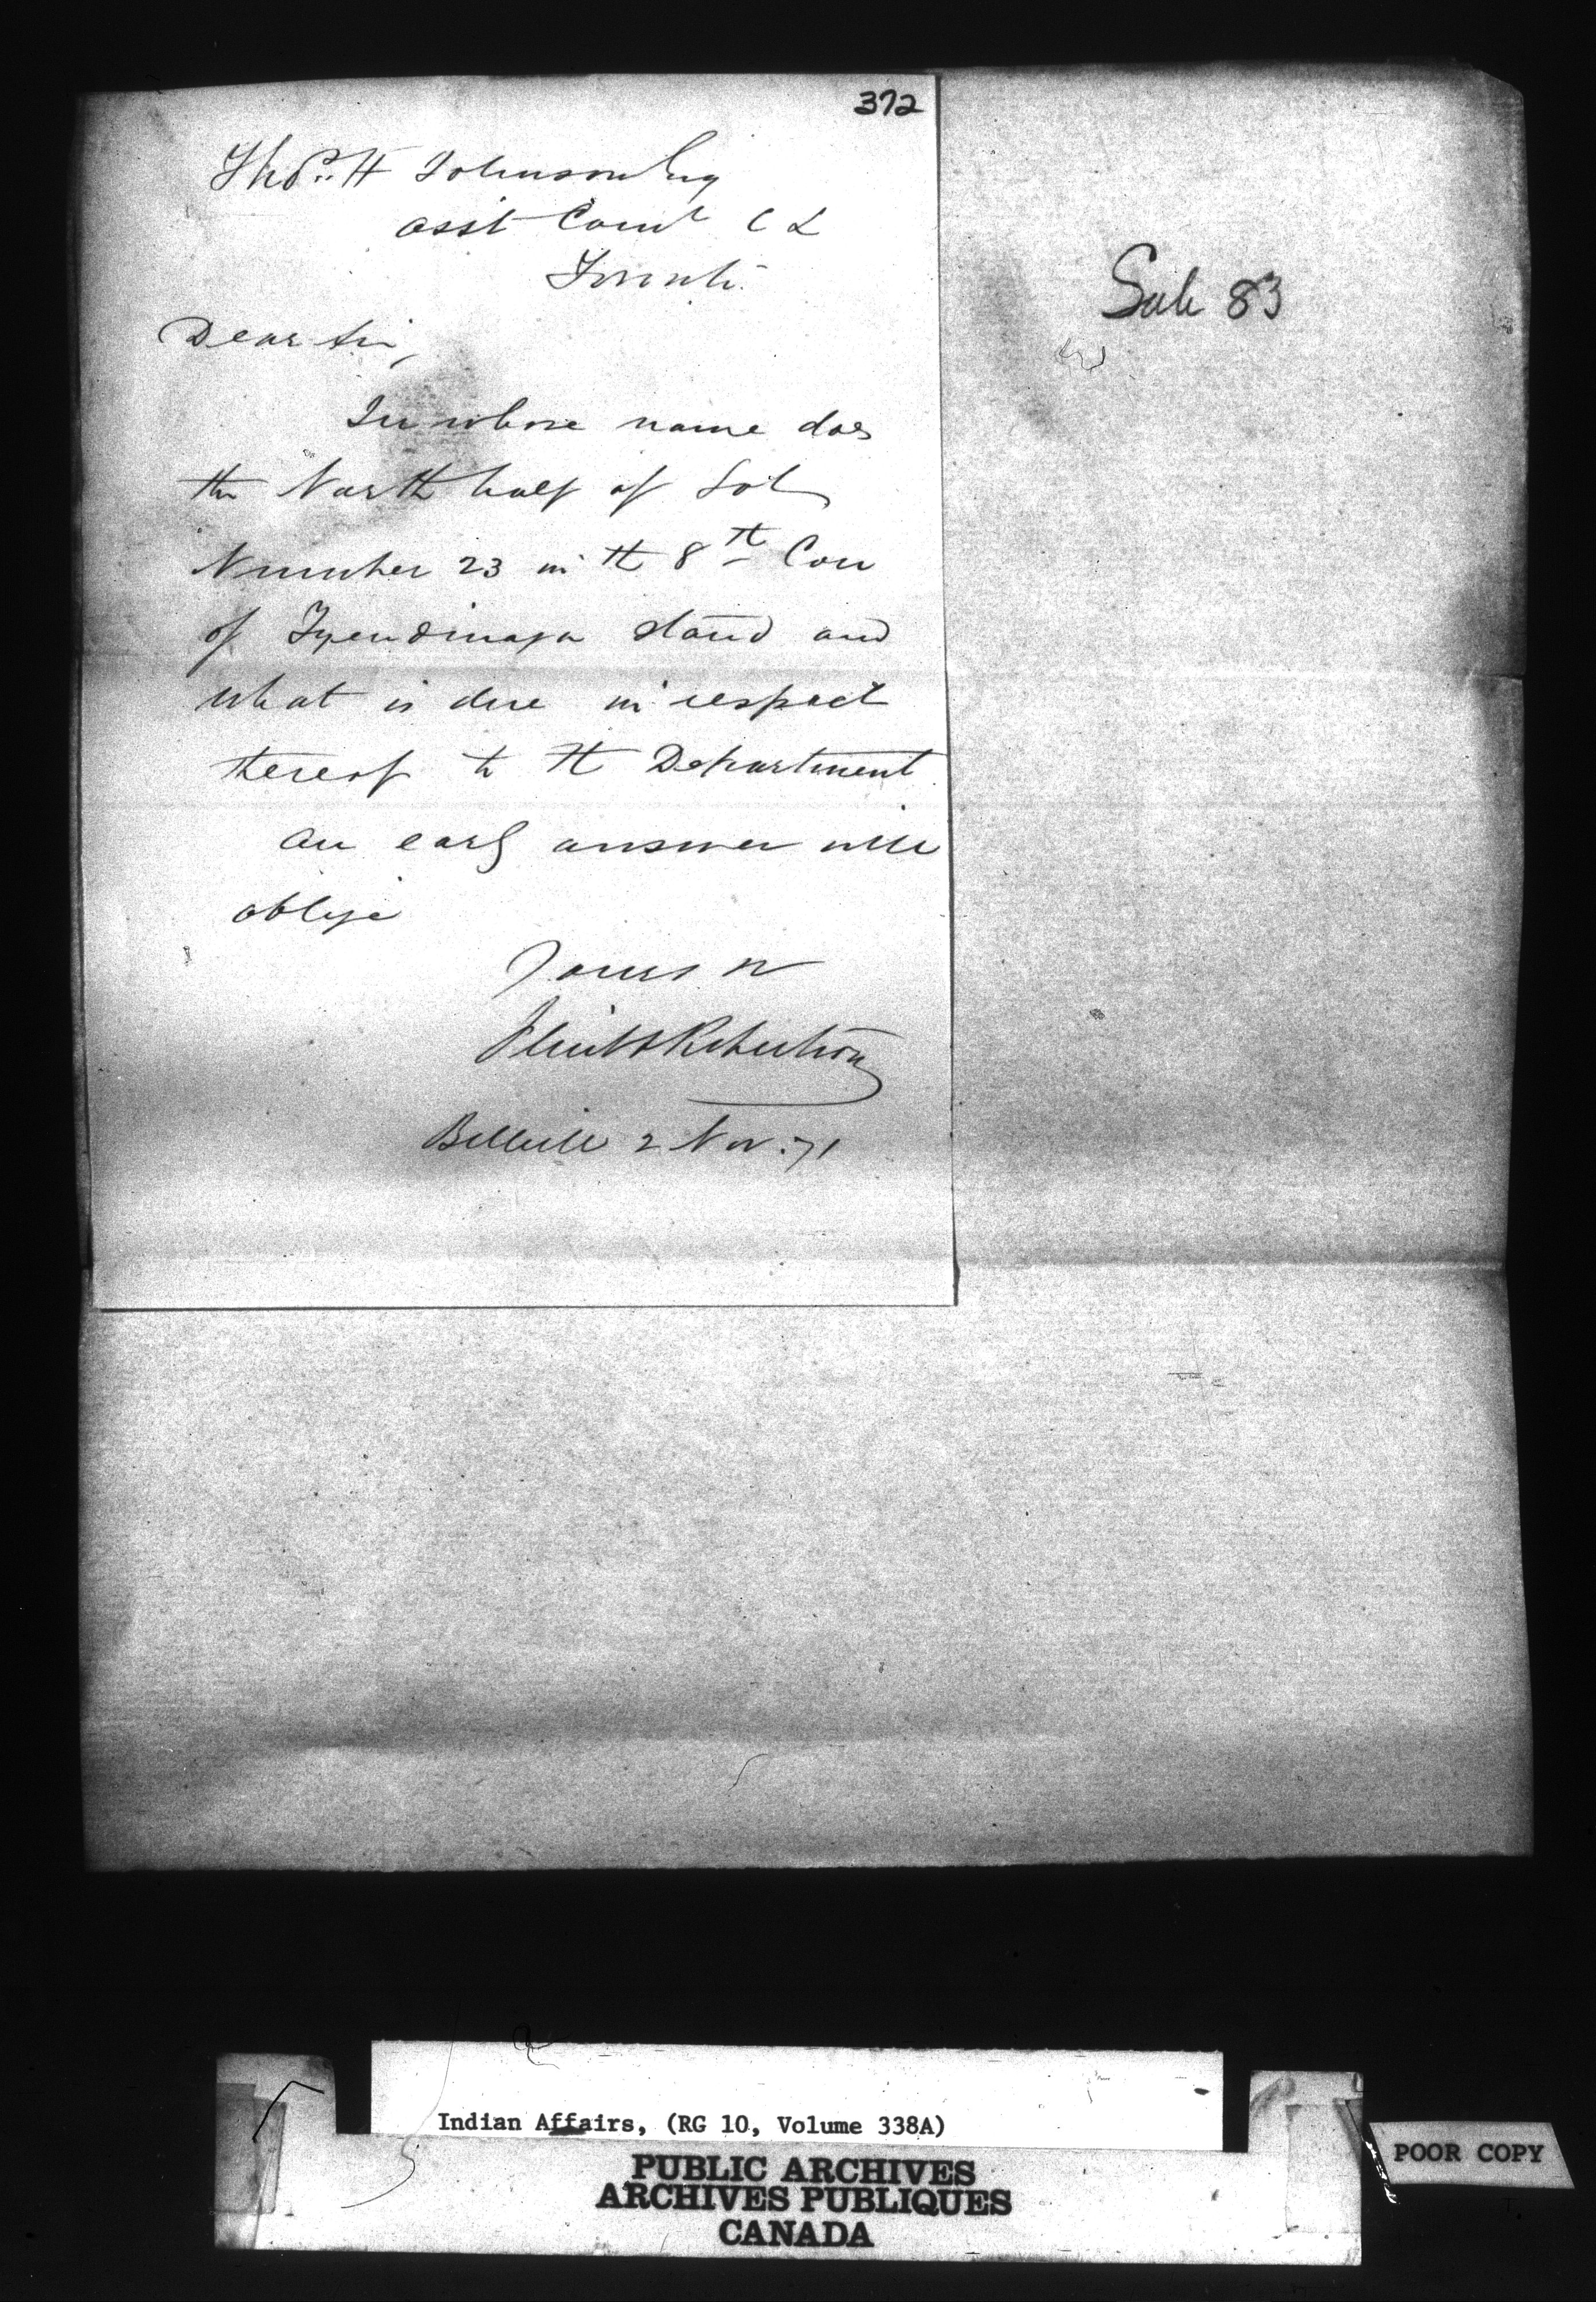 372
Thos. H Johnson Esq
asst Comr C L
Toronto
Dear Sir,
In whose name does
the North half of Lot
Number 23 in the 8th Con
of Tyendinaga stand and
what is due in respect
thereof to the Department
an early answer will
oblige
Yours &c
Flint & Robertson
Belleville 2 Nov. 71
Sale 83
Indian Affairs, (RG 10, Volume 338A)
PUBLIC ARCHIVES
ARCHIVES PUBLIQUES
CANADA
POOR COPY